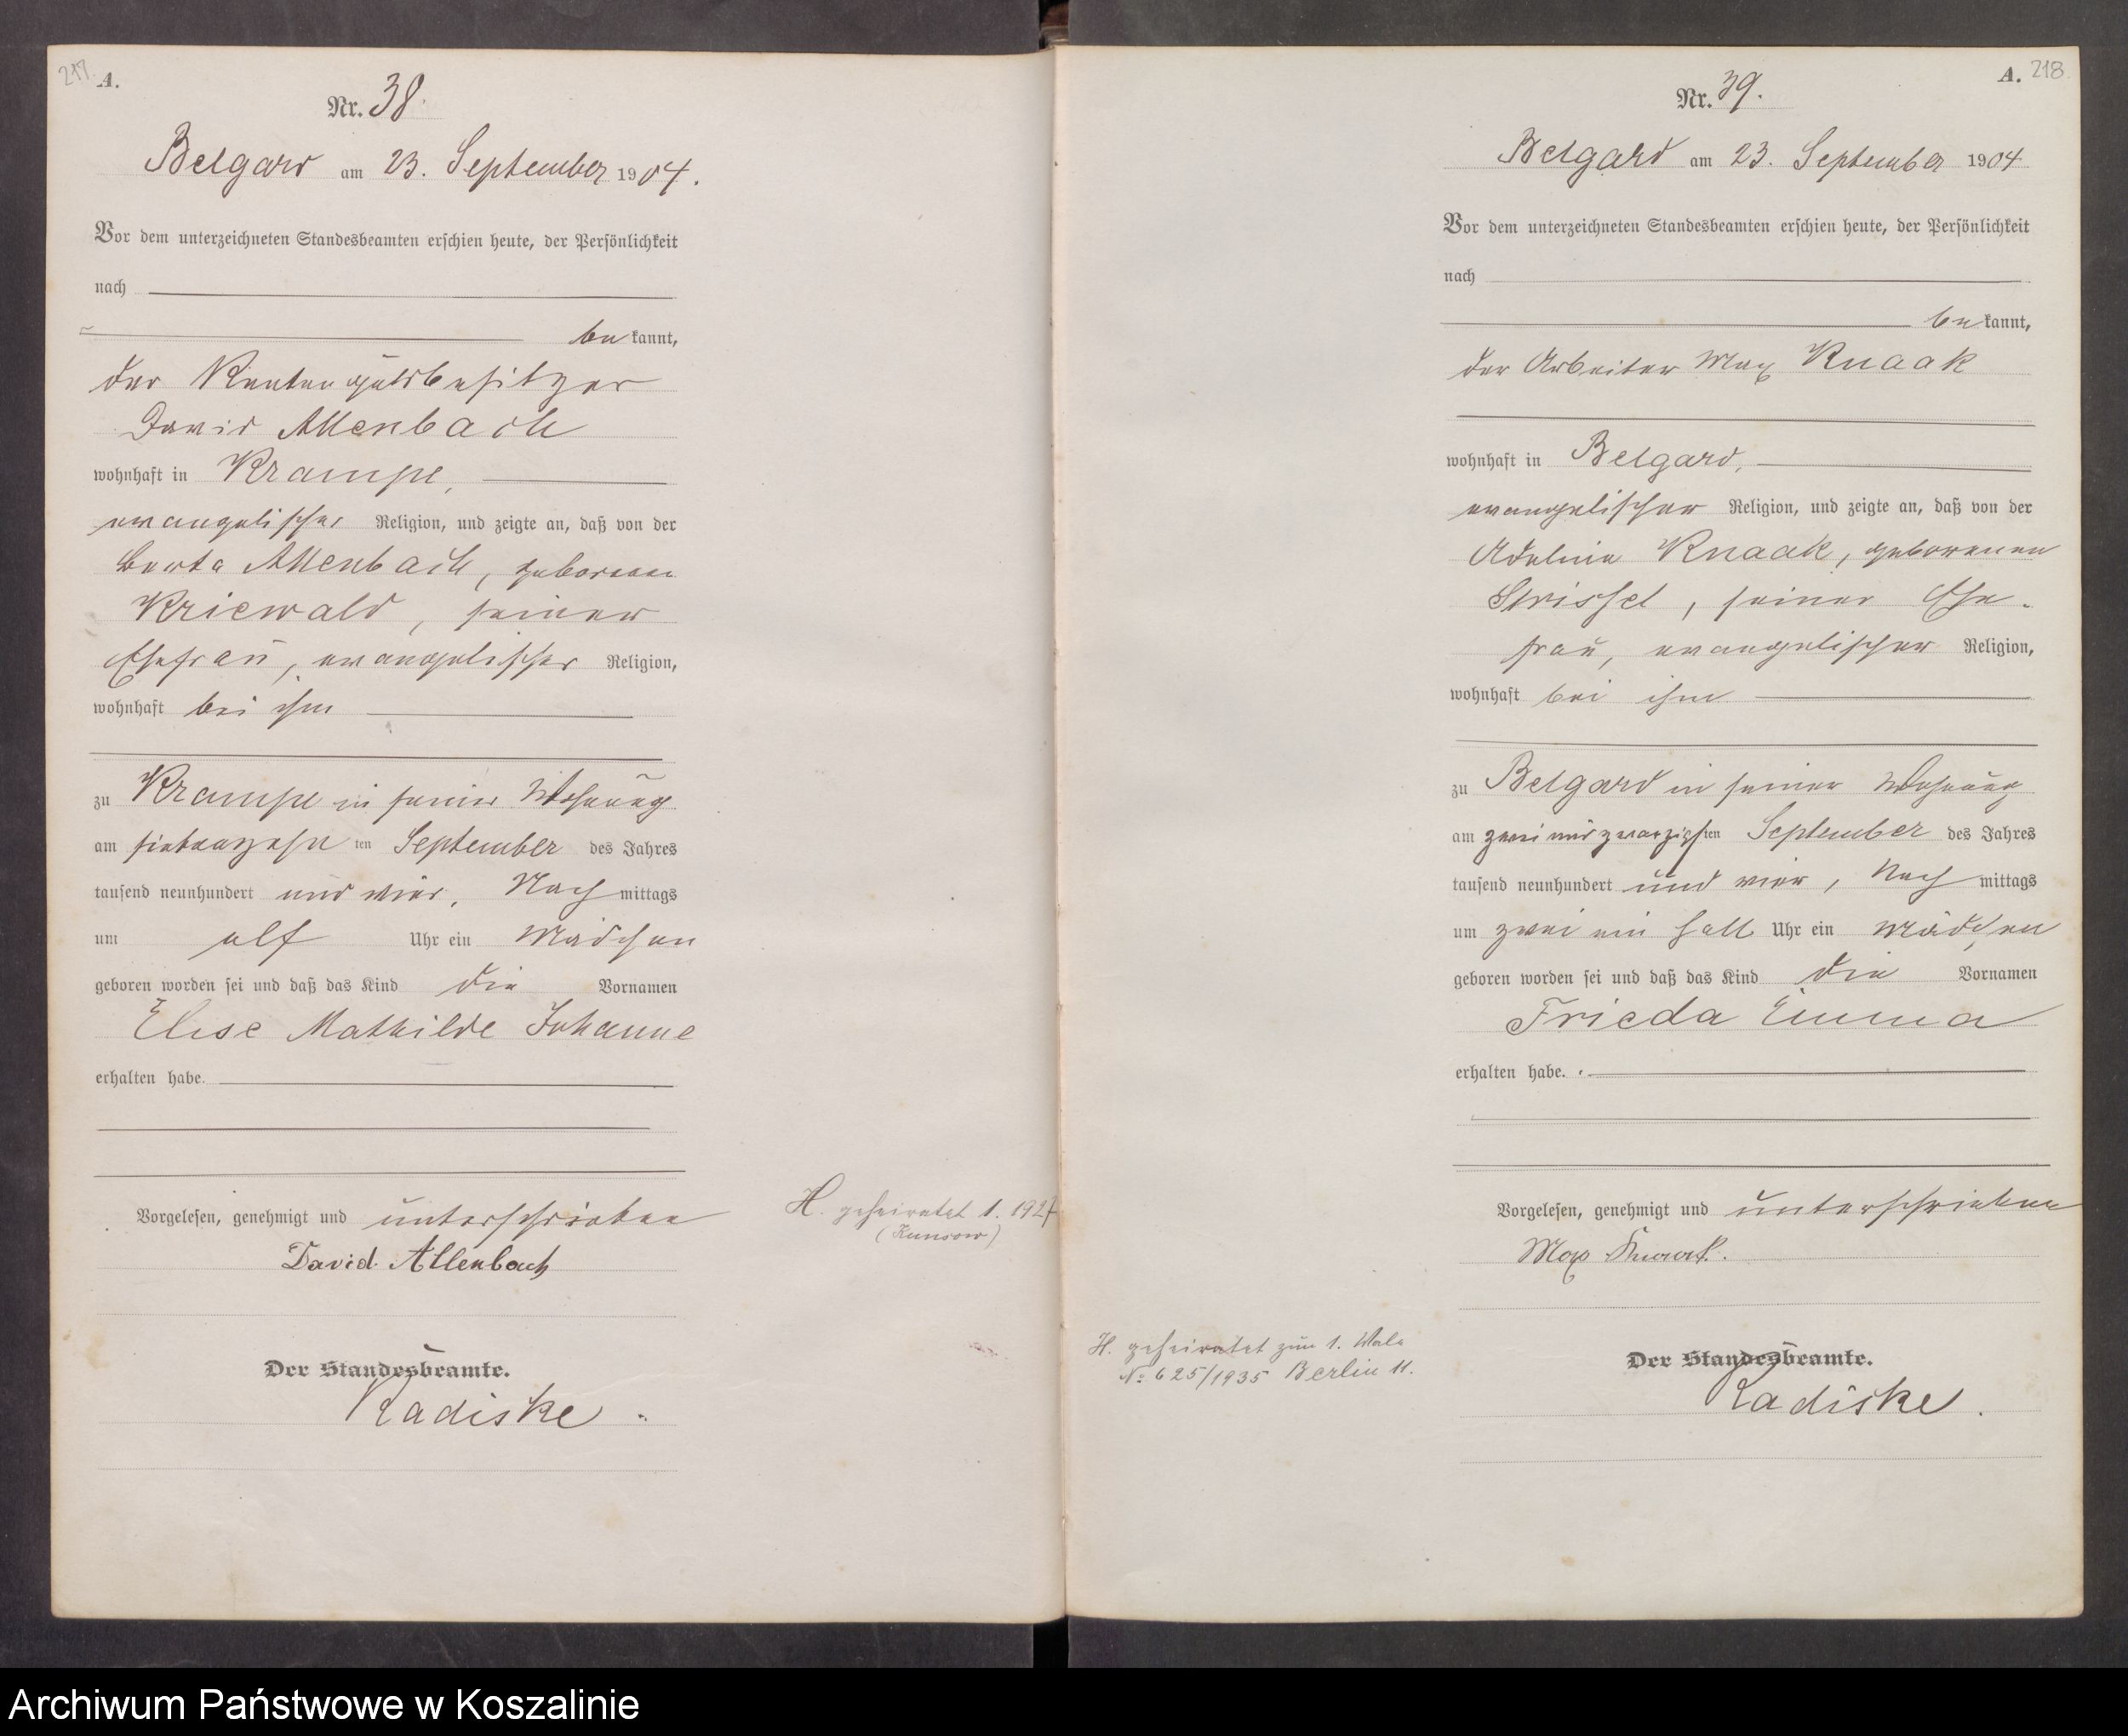 217.
A.
Nr. 38.
Belgard am 23. September 1904.
Vor dem unterzeichneten Standesbeamten erschien heute, der Persönlichkeit
nach
bekannt,
der Rentengutsbesitzer
David Allenbach
wohnhaft in Krampe,
evangelischer Religion, und zeigte an, daß von der
Berta Allenbach, geborenen
Kriewald, seiner
Ehefrau, evangelischer Religion,
wohnhaft bei ihm
zu Krampe in seiner Wohnung
am siebenzehnten September des Jahres
tausend neunhundert und vier, Nachmittags
um elf Uhr ein Mädchen
geboren worden sei und daß das Kind die Vornamen
Elise Mathilde Johanne
erhalten habe.
Vorgelesen, genehmigt und unterschrieben
David Allenbach
Der Standesbeamte.
Radiske.
H. geheiratet 1. 1927
(Kunsow)
A. 218
Nr. 39.
Belgard am 23. September 1904
Vor dem unterzeichneten Standesbeamten erschien heute, der Persönlichkeit
nach
bekannt,
der Arbeiter Max Knaak
wohnhaft in Belgard,
evangelischer Religion, und zeigte an, daß von der
Adeline Knaak, geborenen
, seiner Ehe-
frau, evangelischer Religion,
wohnhaft bei ihm
zu Belgard in seiner Wohnung
am zweiundzwanzigsten September des Jahres
tausend neunhundert und vier, Nachmittags
um zwei ein halb Uhr ein Mädchen
geboren worden sei und daß das Kind die Vornamen
Frieda Emma
erhalten habe.
Vorgelesen, genehmigt und unterschrieben
Max Knaak.
Der Standesbeamte.
Radiske.
H. geheiratet zum 1. Male
No 625/1935 Berlin 11.
Archiwum Państwowe w Koszalinie